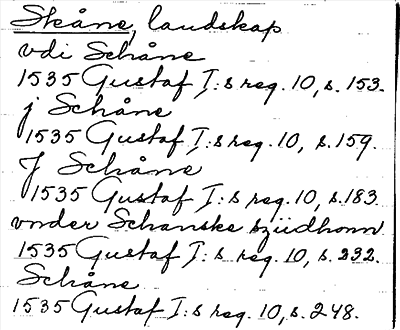 Skåne, landskap
vdi Schåne
1535 Gustaf I:s reg. 10, s. 153.
j Schåne
1535 Gustaf I:s reg. 10, s. 159.
J Schåne
1535 Gustaf I:s reg. 10, s. 183
vnder Schanske szüdhonn
1535 Gustaf I:s reg. 10, s. 232.
Schåne
1535 Gustaf I:s reg. 10, s. 248.